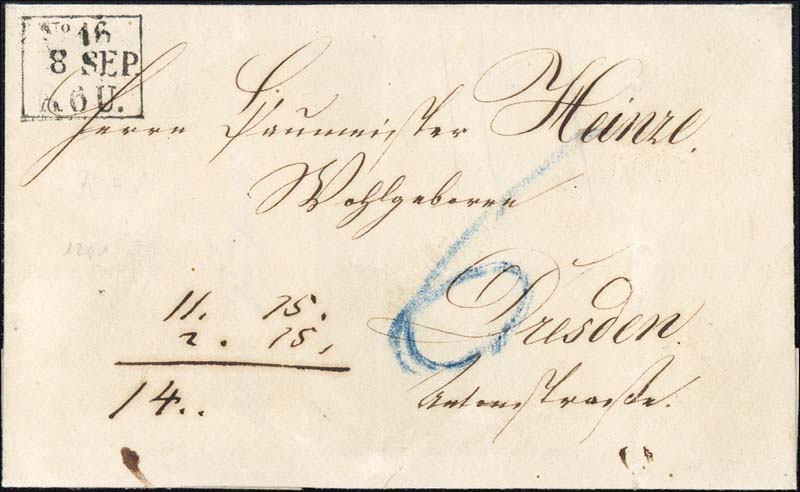 No 16
8 SEP.
A 6 U.
Herrn Baumeister Heinze.
Wohlgeboren
6
Dresden.
Antonstraße.
11. 75.
2. 75,
14..